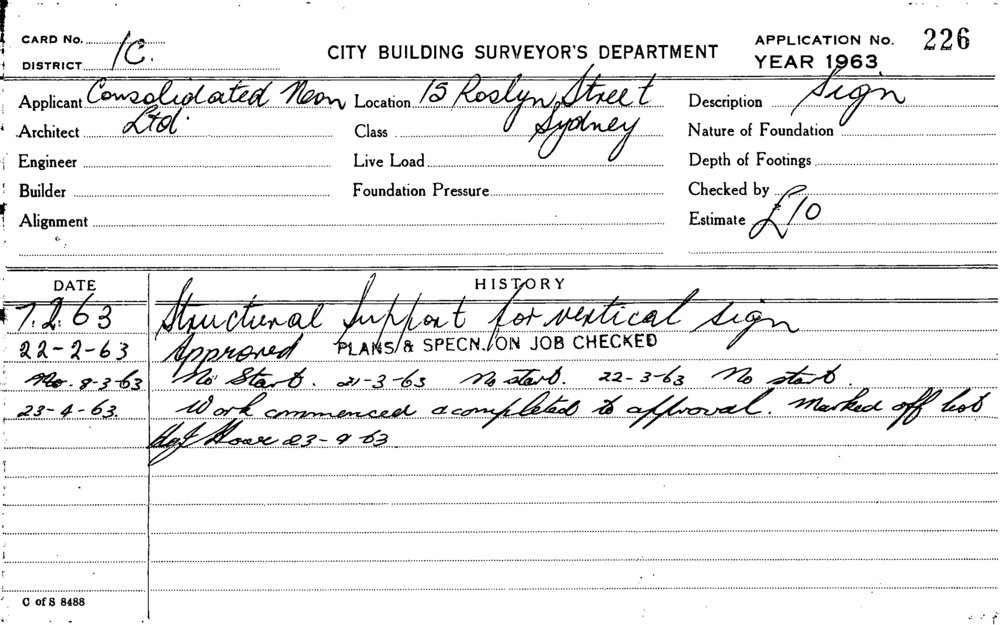 CARD No.
DISTRICT 1C.
CITY BUILDING SURVEYOR'S DEPARTMENT
APPLICATION No. 226
YEAR 1963
Applicant Consolidated Neon Ltd.
Location 15 Roslyn Street Sydney
Description Sign
Architect
Class
Nature of Foundation
Engineer
Live Load
Depth of Footings
Builder
Foundation Pressure
Checked by
Alignment
Estimate £10
DATE HISTORY
7.2.63 Structural Support for vertical sign
22-2-63 Approved PLANS & SPECN. ON JOB CHECKED
8-3-63 No Start. 21-3-63 No start. 22-3-63 No start.
23-4-63 Work commenced & completed to approval. Marked off
23-9-63
C of S 8488